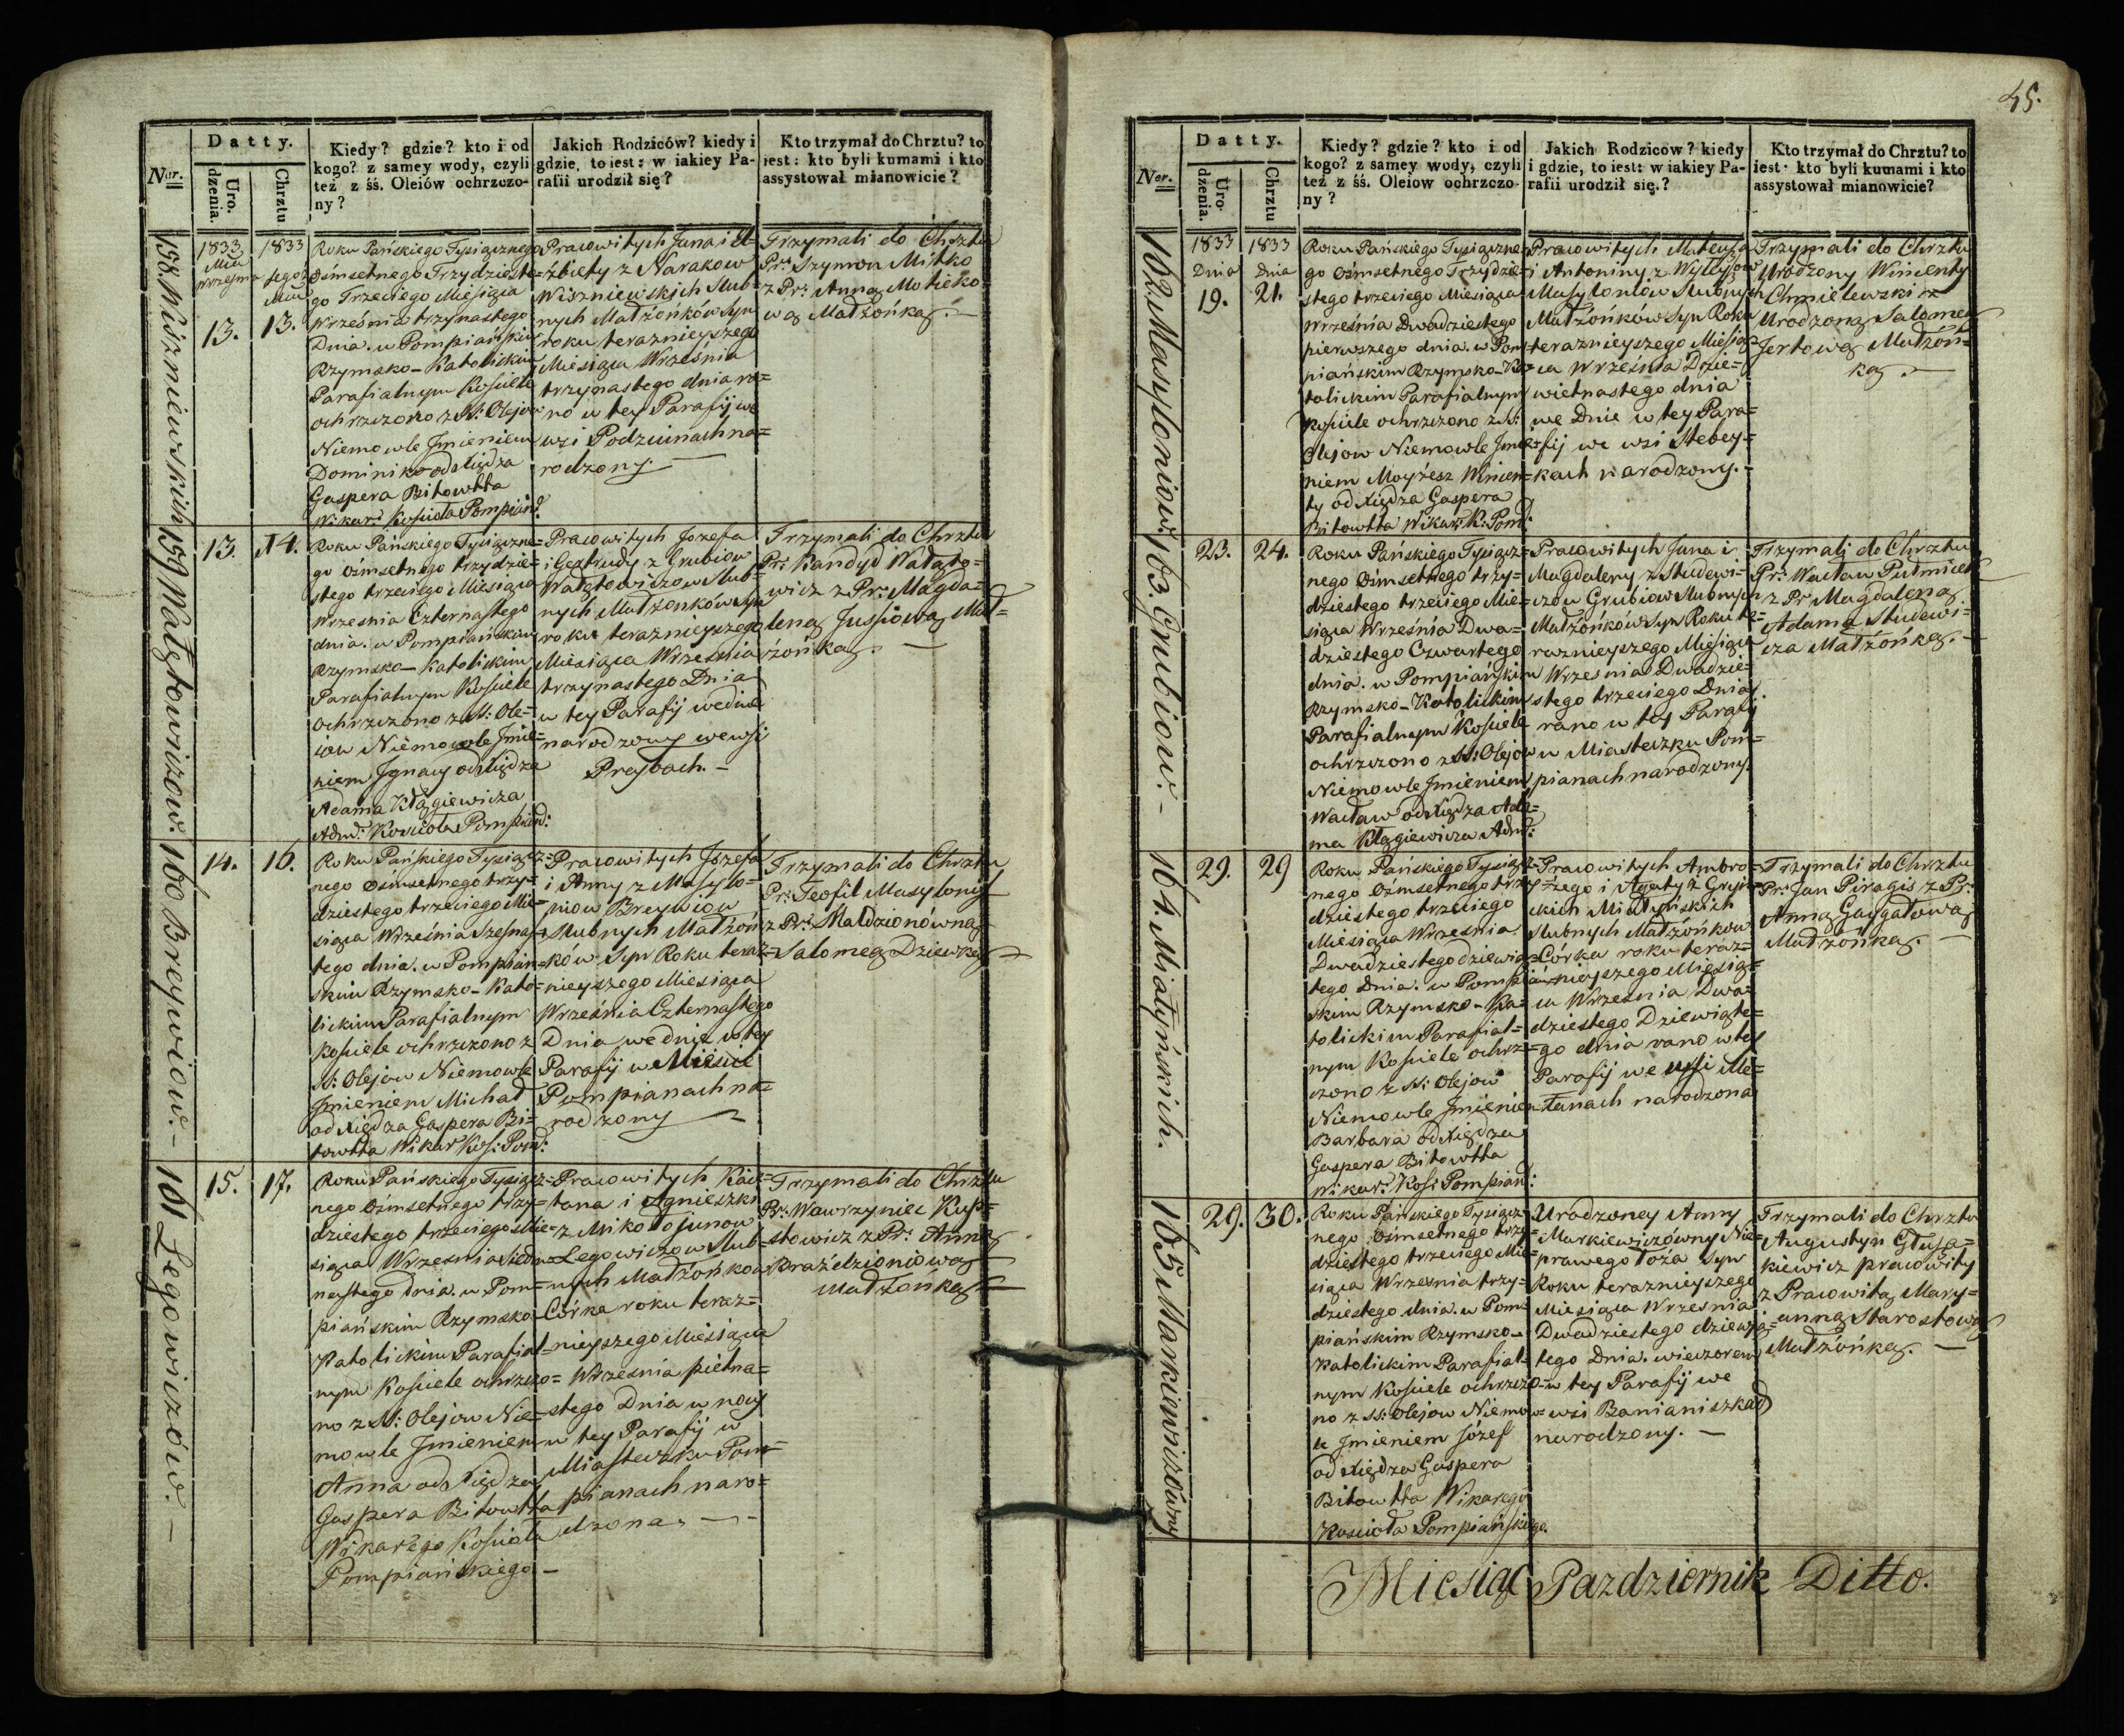 45.
Ner.
Datty.
Uro.
dzenia.
Chrztu
Kiedy? gdzie? kto i od
kogo? z samey wody, czyli
też z śś. Oleiów ochrzczo-
ny?
Jakich Rodziców? kiedy i
gdzie, to iest: w iakiey Pa-
rafii urodził się?
Kto trzymał do Chrztu? to
iest: kto byli kumami i kto
assystował mianowicie?
158. Wiszniewskich
1833
13.
1833
13.
Roku Pańskiego Tysiącznego
Ośmsetnego Trzydzieste=
go Trzeciego Miesiąca
Września trzynastego
Dnia. w Pompiańskim
Rzymsko-Katolickim
Parafialnym Kościele
ochrzczono z SS: Olejow
Niemowle Jmieniem
Dominik od Xiędza
Gaspera Bitowtta
Wikar: Kościoła Pompiań:
Pracowitych Jana i El=
żbiety z Narakow
Wiszniewskich Slub=
nych Małżonków Syn
roku teraznieyszego
Miesiąca Września
trzynastego dnia ra=
no w tey Parafij we
wsi Podziunach na=
rodzony. —
Trzymali do Chrztu
Pr: Szymon Mitko
z Pr: Anną Motieko
wą Małżonką. —
159 Wałątowiczow.
13.
14.
Roku Pańskiego Tysiączne=
go Ośmsetnego trzydzie=
stego trzeciego Miesiąca
Września Czternastego
dnia. w Pompiańskim
Rzymsko-Katolickim
Parafialnym Kościele
ochrzczono z SS: Ole=
iow Niemowle Jmie=
niem Jgnacy od Xiędza
Adama Kłągiewicza
Adm: Kościoła Pompiań:
Pracowitych Jozefa
i Gertrudy z Grubiow
Wałątowiczow Slub=
nych Małżonków Syn
roku teraznieyszego
Miesiąca Września
trzynastego Dnia
w tey Parafij we dnie
narodzony we wsi
Praybach. —
Trzymali do Chrztu
Pr: Kandyd Wałąto=
wicz z Pr: Magda=
leną Jussiową Mał=
żonką. —
160 Breywiow. —
14.
16.
Roku Pańskiego Tysiącz=
nego Ośmsetnego trzy=
dziestego trzeciego Mie=
siąca Września Szesnas=
tego dnia. w Pompiań=
skim Rzymsko-Kato=
lickim Parafialnym
Kościele ochrzczono z
SS: Olejow Niemowle
Jmieniem Michał
od Xiędza Gaspera Bi=
towtta Wikar Koś: Pom:
Pracowitych Jozefa
i Anny z Masylo=
niow Breywiow
Slubnych Małżon=
ków Syn Roku teraz=
nieyszego Miesiąca
Września Czternastego
Dnia we dnie w tey
Parafij w Mieście
Pompianach na=
rodzony —
Trzymali do Chrztu
Pr: Teofil Masylonis
z Pr: Małdzionówną
Salomeą Dziewką —
161 Legowiczów. —
15.
17.
Roku Pańskiego Tysiącz=
nego Ośmsetnego trzy=
dziestego trzeciego Mie=
siąca Września Siedm=
nastego dnia. w Pom=
piańskim Rzymsko
Katolickim Parafial=
nym Kościele ochrzczo=
no z SS: Olejow Nie=
mowle Jmieniem
Anna od Xiędza
Gaspera Bitowtta
Wikarego Kościoła
Pompiańskiego —
Pracowitych Kaie=
tana i Agnieszki
z Mikołojunow
Legowiczow Slub=
nych Małżonkow
Córka roku teraz=
nieyszego Miesiąca
Września piętna=
stego Dnia w nocy
w tey Parafij w
Miasteczku Pom=
pianach naro=
dzona. —
Trzymali do Chrztu
Pr: Wawrzyniec Kup=
stowicz z Pr: Anną
Braździoniową
Małżonką —
Ner.
Datty.
Uro-
dzenia.
Chrztu
Kiedy? gdzie? kto i od
kogo? z samey wody, czyli
też z śś. Oleiow ochrzczo-
ny?
Jakich Rodziców? kiedy
i gdzie, to iest: w iakiey Pa-
rafii urodził się?
Kto trzymał do Chrztu? to
iest: kto byli kumami i kto
assystował mianowicie?
162 Masyloniow.
1833
Dnia
19.
1833
Dnia
21.
Roku Pańskiego Tysiączne=
go Ośmsetnego Trzydzie=
stego trzeciego Miesiąca
Września Dwadziestego
pierwszego dnia. w Pom=
piańskim Rzymsko-Ka=
tolickim Parafialnym
Kościele ochrzczono z SS:
Olejow Niemowle Jmie=
niem Moyżesz Wincen=
ty od Xiędza Gaspera
Bitowtta Wikar: K: Pom:
Pracowitych Mateusza
i Antoniny z
Masyloniow Slubnych
Małżonków Syn Roku
teraznieyszego Miesią=
ca Września Dzie=
wietnastego dnia
we Dnie w tey Para=
fij we wsi Stebey=
kach narodzony. —
Trzymali do Chrztu
Urodzony Wincenty
Chmielewski z
Urodzoną Salomeą
Jertową Małżon=
ką. —
163. Grubiow. —
23.
24.
Roku Pańskiego Tysiącz=
nego Ośmsetnego trzy=
dziestego trzeciego Mie=
siąca Września Dwa=
dziestego Czwartego
dnia. w Pompiańskim
Rzymsko-Katolickim
Parafialnym Kościele
ochrzczono z SS: Olejow
Niemowle Jmieniem
Wacław od Xiędza Ada=
ma Kłągiewicza Adm:
Pracowitych Jana i
Magdaleny z Studewi=
czow Grubiow Slubnych
Małżonkow Syn Roku te=
raznieyszego Miesiąca
Września Dwadzie=
stego trzeciego Dnia
rano w tey Parafij
w Miasteczku Pom=
pianach narodzony.
Trzymali do Chrztu
Pr: Wacław Putmiett
z Pr Magdaleną
Adama Studewi=
cza Małżonką. —
164. Miałyńskich.
29.
29
Roku Pańskiego Tysiącz=
nego Ośmsetnego trzy=
dziestego trzeciego
Miesiąca Września
Dwadziestego dziewią=
tego Dnia. w Pompiań=
skim Rzymsko-Ka=
tolickim Parafial=
nym Kościele ochrz=
czono z SS: Olejow
Niemowle Jmieniem
Barbara od Xiędza
Gaspera Bitowtta
Wikar: Koś: Pompiań:
Pracowitych Ambro=
żego i Agaty z
Miałyńskich
Slubnych Małżonkow
Córka roku teraz=
nieyszego Miesią=
ca Września Dwa=
dziestego Dziewiąte=
go dnia rano w tey
Parafij we wsi Me=
łanach narodzona
Trzymali do Chrztu
Pr: Jan Piragis z Pr:
Anną Gaygałową
Małżonką. —
165 Markiewiczówny
29.
30.
Roku Pańskiego Tysiącz=
nego Ośmsetnego trzy=
dziestego trzeciego Mie=
siąca Września trzy=
dziestego dnia. w Pom=
piańskim Rzymsko-
Katolickim Parafial=
nym Kościele ochrzczo=
no z SS: Olejow Niemow=
le Jmieniem Józef
od Xiędza Gaspera
Bitowtta Wikarego
Kościoła Pompiańskiego.
Urodzoney Anny
Markiewiczówny Nie=
prawego łoża Syn
Roku teraznieyszego
Miesiąca Września
Dwadziestego dziewią=
tego Dnia. wieczorem
w tey Parafij we
wsi Banianiszkach
narodzony. —
Trzymali do Chrztu
Augustyn Głusa=
kiewicz pracowity
z Pracowitą Mary=
anną Starostową
Małżonką. —
Miesiąc Pazdziernik Ditto.